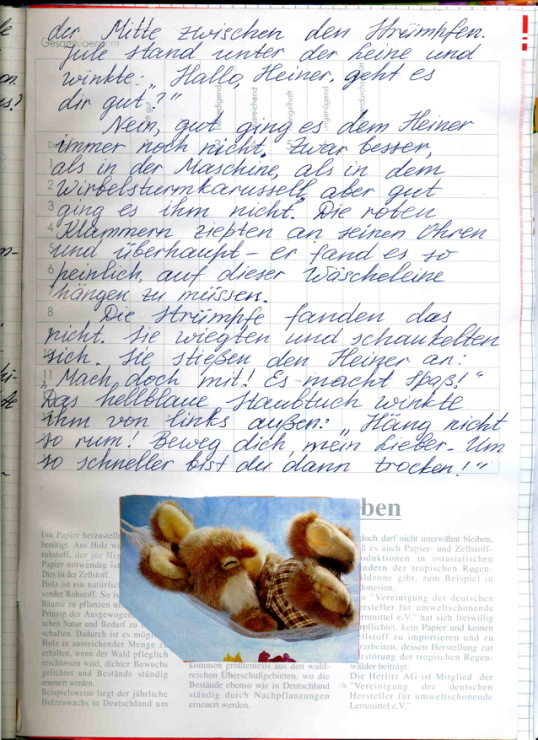 der Mitte zwischen den Strümpfen.
Jule stand unter der Leine und
winkte: „Hallo, Heiner, geht es
dir gut?"
Nein, gut ging es dem Heiner
immer noch nicht. Zwar besser,
als in der Maschine, als in dem
Wirbelsturmkarussell, aber gut
ging es ihm nicht. Die roten
Klammern ziepten an seinen Ohren
und überhaupt – er fand es so
peinlich, auf dieser Wäscheleine
hängen zu müssen.
Die Strümpfe fanden das
nicht. Sie wiegten und schaukelten
sich. Sie stießen den Heiner an:
„Mach doch mit! Es macht Spaß!"
Das hellblaue Staubtuch winkte
ihm von links außen: „Häng nicht
so rum! Beweg dich, mein Lieber. Um
so schneller bist du dann trocken!"
ben
Um Papier herzustelle
benötigt. Aus Holz wi
rohstoff, der zur Her
Papier notwendig ist
Dies ist der Zellstoff.
Holz ist ein natürlic
sender Rohstoff. So is
Bäume zu pflanzen al
Prinzip der Ausgewogen
schen Natur und Bedarf zu
schaften. Dadurch ist es mögl
Holz in ausreichender Menge zu
erhalten, wenn der Wald pfleglich
erschlossen wird, dichter Bewuchs
gelichtet und Bestände ständig
erneuert werden.
Beispielsweise liegt der jährliche
Holzzuwachs in Deutschland um
kommen größtenteils aus den wald-
reichen Überschußgebieten, wo die
Bestände ebenso wie in Deutschland
ständig durch Nachpflanzungen
erneuert werden.
doch darf nicht unerwähnt bleiben,
ß es auch Papier- und Zellstoff-
oduktionen in ostasiatischen
ändern der tropischen Regen-
aldzone gibt, zum Beispiel in
donesien.
ie "Vereinigung der deutschen
ersteller für umweltschonende
ernmittel e.V." hat sich freiwillig
pflichtet, kein Papier und keinen
llstoff zu importieren und zu
arbeiten, dessen Herstellung zur
rstörung der tropischen Regen-
wälder beiträgt.
Die Herlitz AG ist Mitglied der
"Vereinigung der deutschen
Hersteller für umweltschonende
Lernmittel e.V."